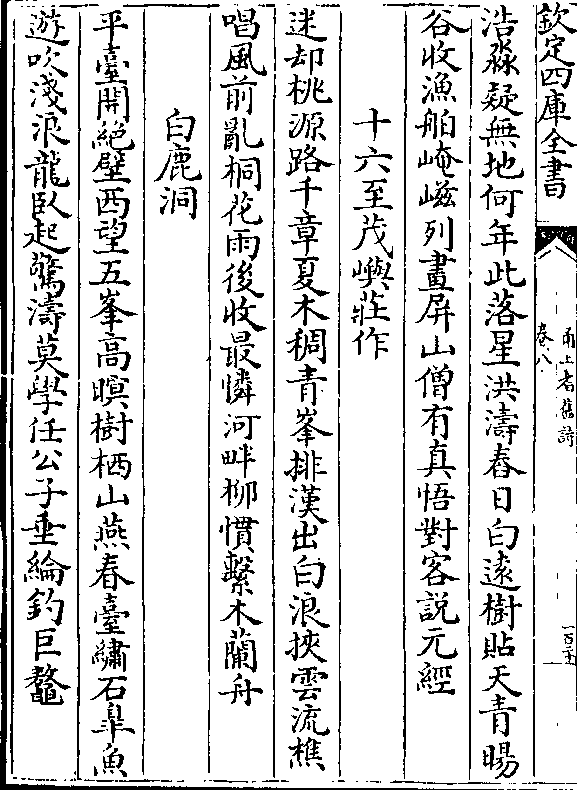 欽定四庫全書
甬上耆舊詩
卷八
浩淼疑無地何年此落星洪濤舂日白遠樹貼天青暘
谷收漁舶崦嵫列畫屏山僧有真悟對客説元經
十六至茂嶼莊作
迷却桃源路千章夏木稠青峯排漢出白浪挾雲流樵
唱風前亂桐花雨後收最憐河畔栁慣繫木蘭舟
白鹿洞
平臺開絶壁西望五峯高暝樹栖山燕春臺繡石臯魚
遊吹淺浪龍臥起驚濤莫學任公子垂綸釣巨鼇